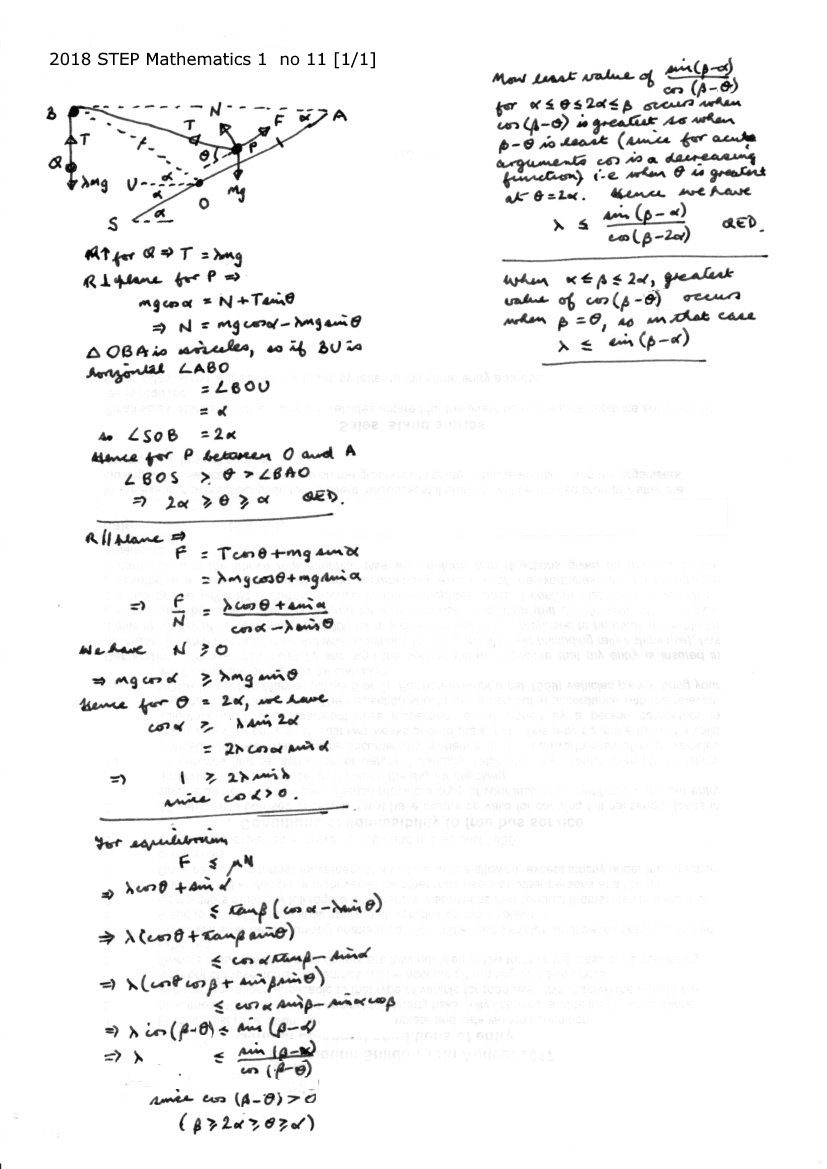 2018 STEP Mathematics 1 no 11 [1/1]
B
T
Q
λmg
N
T
F
θ
P
α
A
U
α
α
O
Mg
S
α
R↑ for Q ⇒ T = λmg
R ⊥ plane for P ⇒
mg cosα = N + T sinθ
⇒ N = mg cosα − λmg sinθ
△ OBA is isosceles, so if BU is
horizontal ∠ABO
= ∠BOU
= α
so ∠SOB = 2α
Hence for P between O and A
∠BOS ≥ θ > ∠BAO
⇒ 2α ≥ θ ≥ α QED.
R // plane ⇒
F = T cosθ + mg sinα
= λmg cosθ + mg sinα
⇒ F/N = (λcosθ + sinα)/(cosα − λsinθ)
We have N ≥ 0
⇒ mg cosα ≥ λmg sinθ
Hence for θ = 2α, we have
cosα ≥ λ sin2α
= 2λ cosα sinα
⇒ 1 ≥ 2λ sinλ
since cosα > 0.
For equilibrium
F ≤ μN
⇒ λcosθ + sinα
≤ tanβ (cosα − λsinθ)
⇒ λ(cosθ + tanβ sinθ)
≤ cosα tanβ − sinα
⇒ λ(cosθ cosβ + sinβ sinθ)
≤ cosα sinβ − sinα cosβ
⇒ λ cos(β−θ) ≤ sin(β−α)
⇒ λ ≤ sin(β−α)/cos(β−θ)
since cos(β−θ) > 0
(β ≥ 2α ≥ θ ≥ α)
Now least value of sin(β−α)/cos(β−θ)
for α ≤ θ ≤ 2α ≤ β occurs when
cos(β−θ) is greatest so when
β−θ is least (since for acute
arguments cos is a decreasing
function) i.e when θ is greatest
at θ = 2α. Hence we have
λ ≤ sin(β−α)/cos(β−2α) QED.
When α ≤ β ≤ 2α, greatest
value of cos(β−θ) occurs
when β = θ, so in that case
λ ≤ sin(β−α)